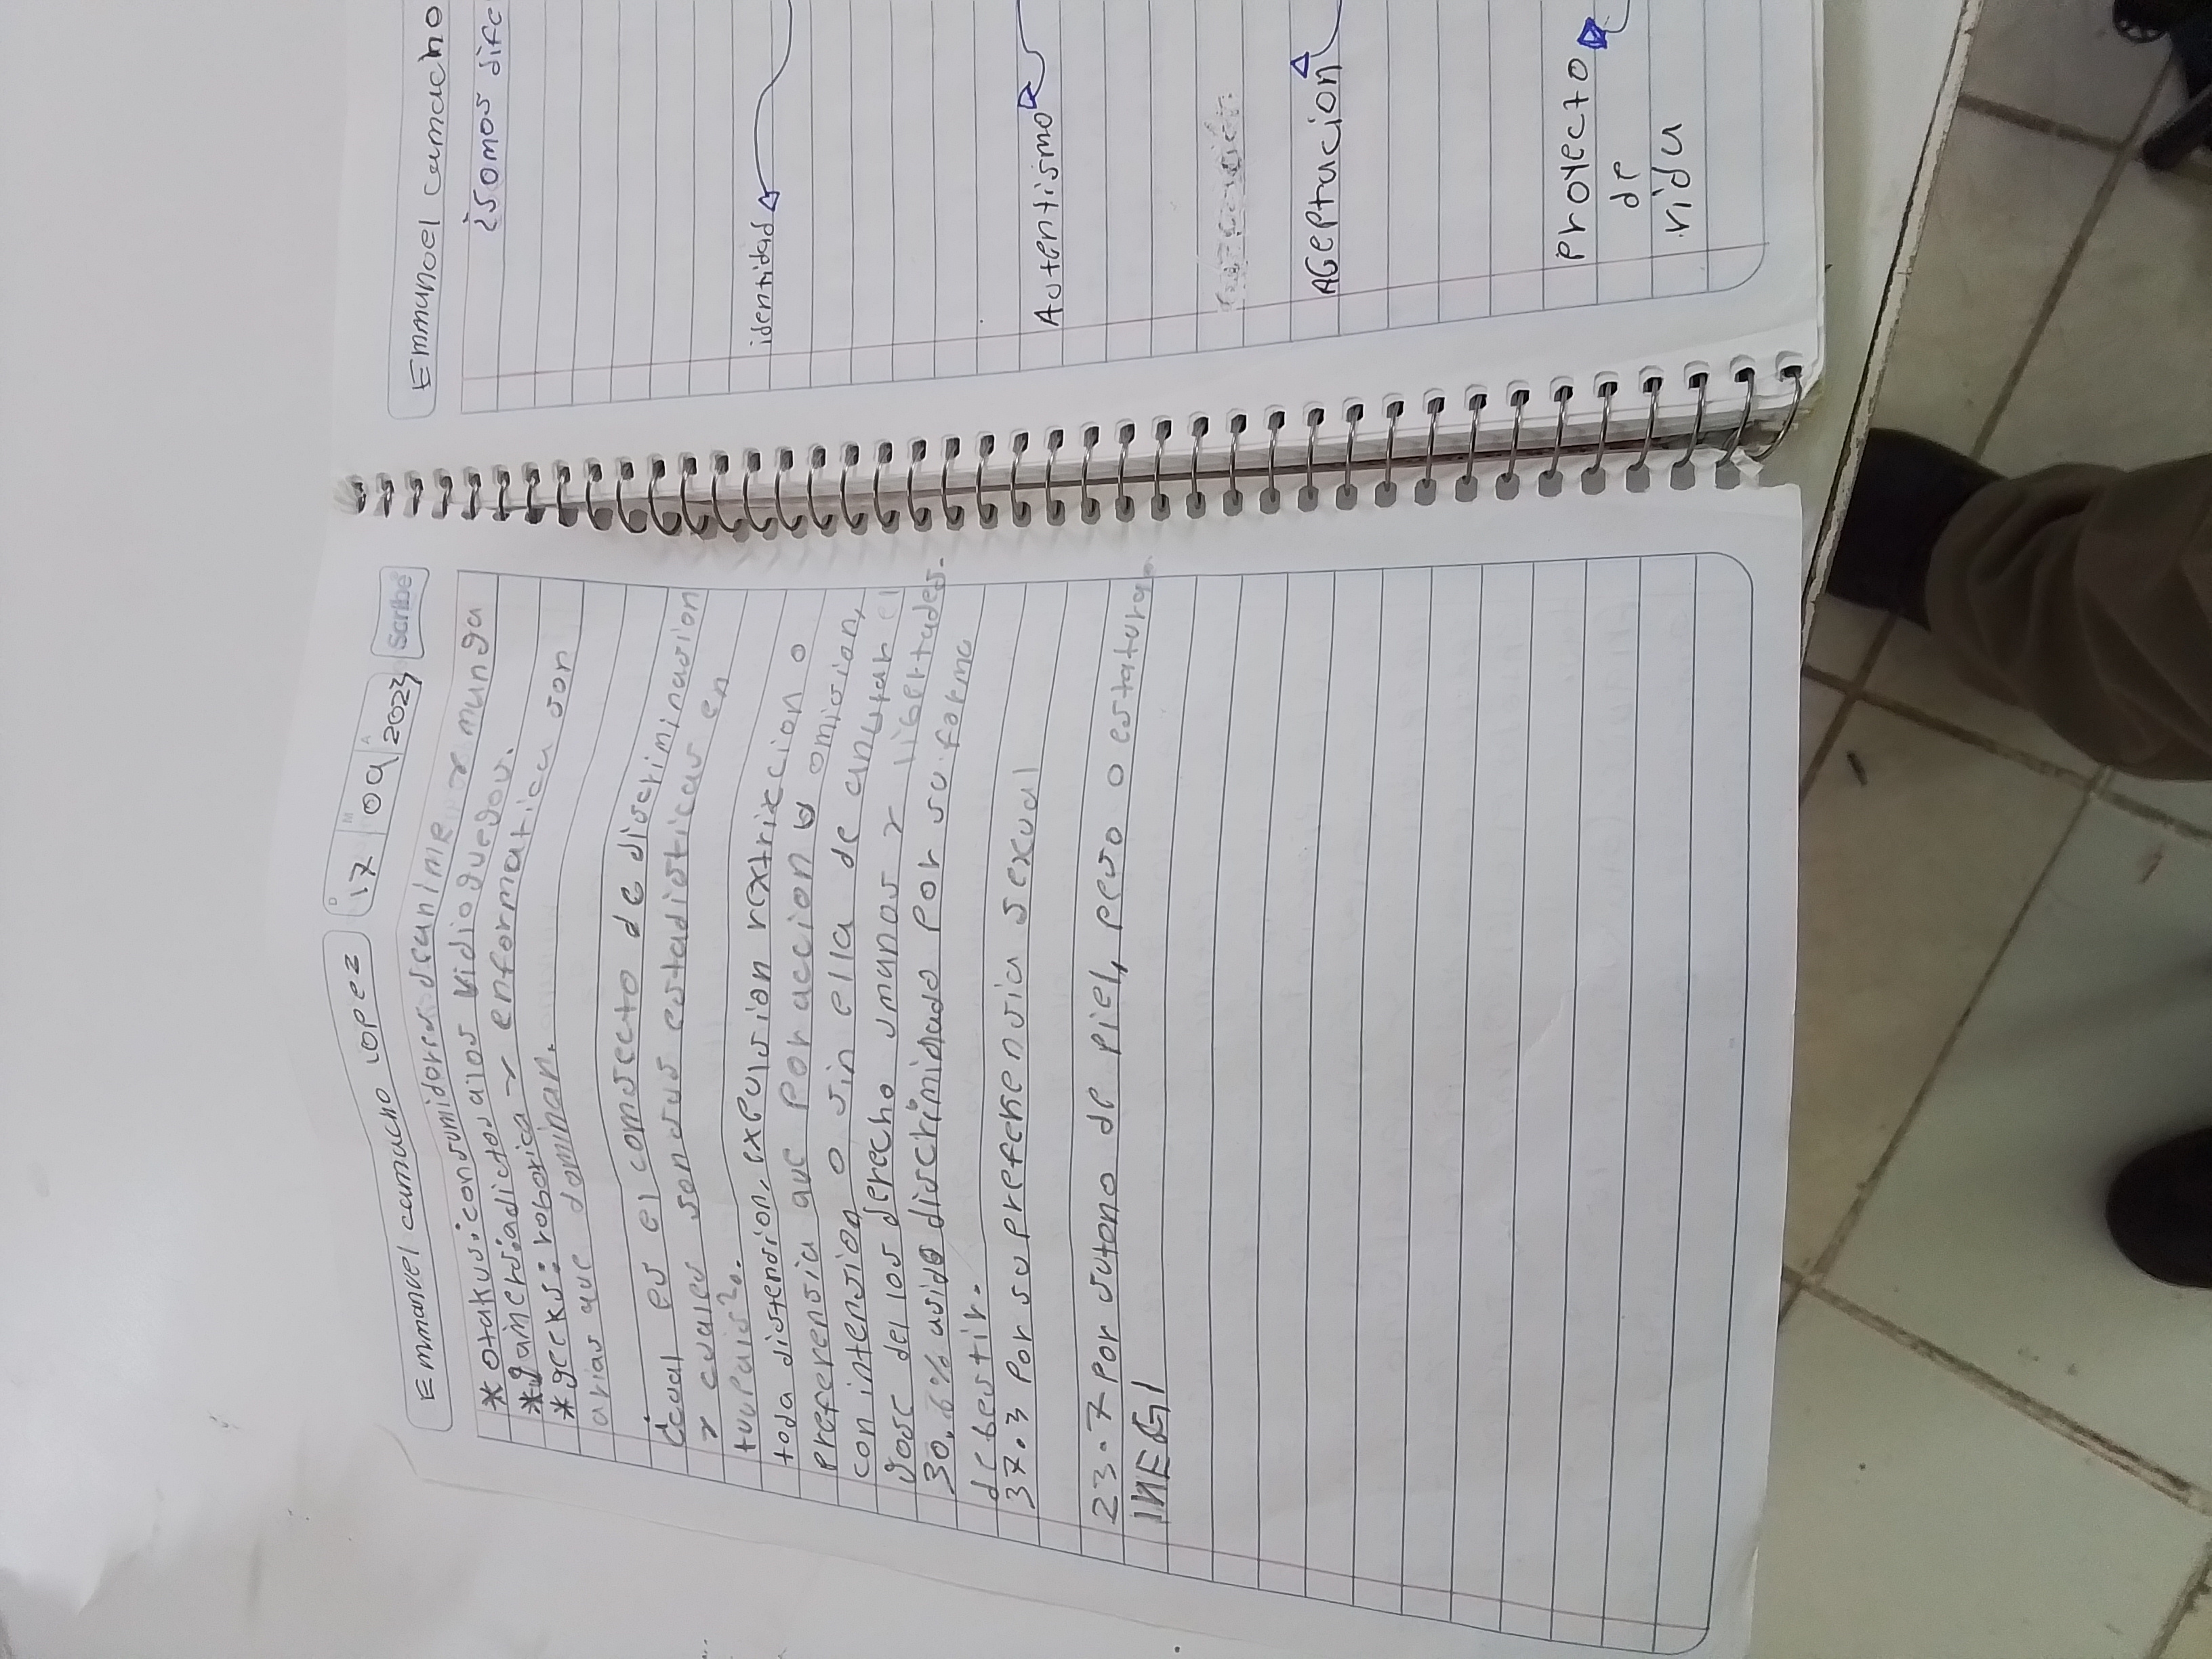 Emmanuel camacho lopez
D 17 M 09 A 2023 Scribe
* otakus: consumidores deanime y manga
* gamers: adictos alos vidioguegos.
* geeks: robotica y enformatica son
arias que dominan.
¿cual es el consecto de discriminasion
y cuales son sus estadisticas en
tuu pais?.
toda distension, expulsion rextrixcion o
preferensia que por accion o omision,
con intension o sin ella de anular el
gose del los derecho umanos y libertades.
30.6% asido discriminado por su forma
de bestir.
37.3 por su preferensia sexual
23.7 por sutono de piel, peso o estatura.
INEGI
Emmanoel camacho
¿somos dife
identidad
Autentismo
AGeptacion
proyecto
de
vida